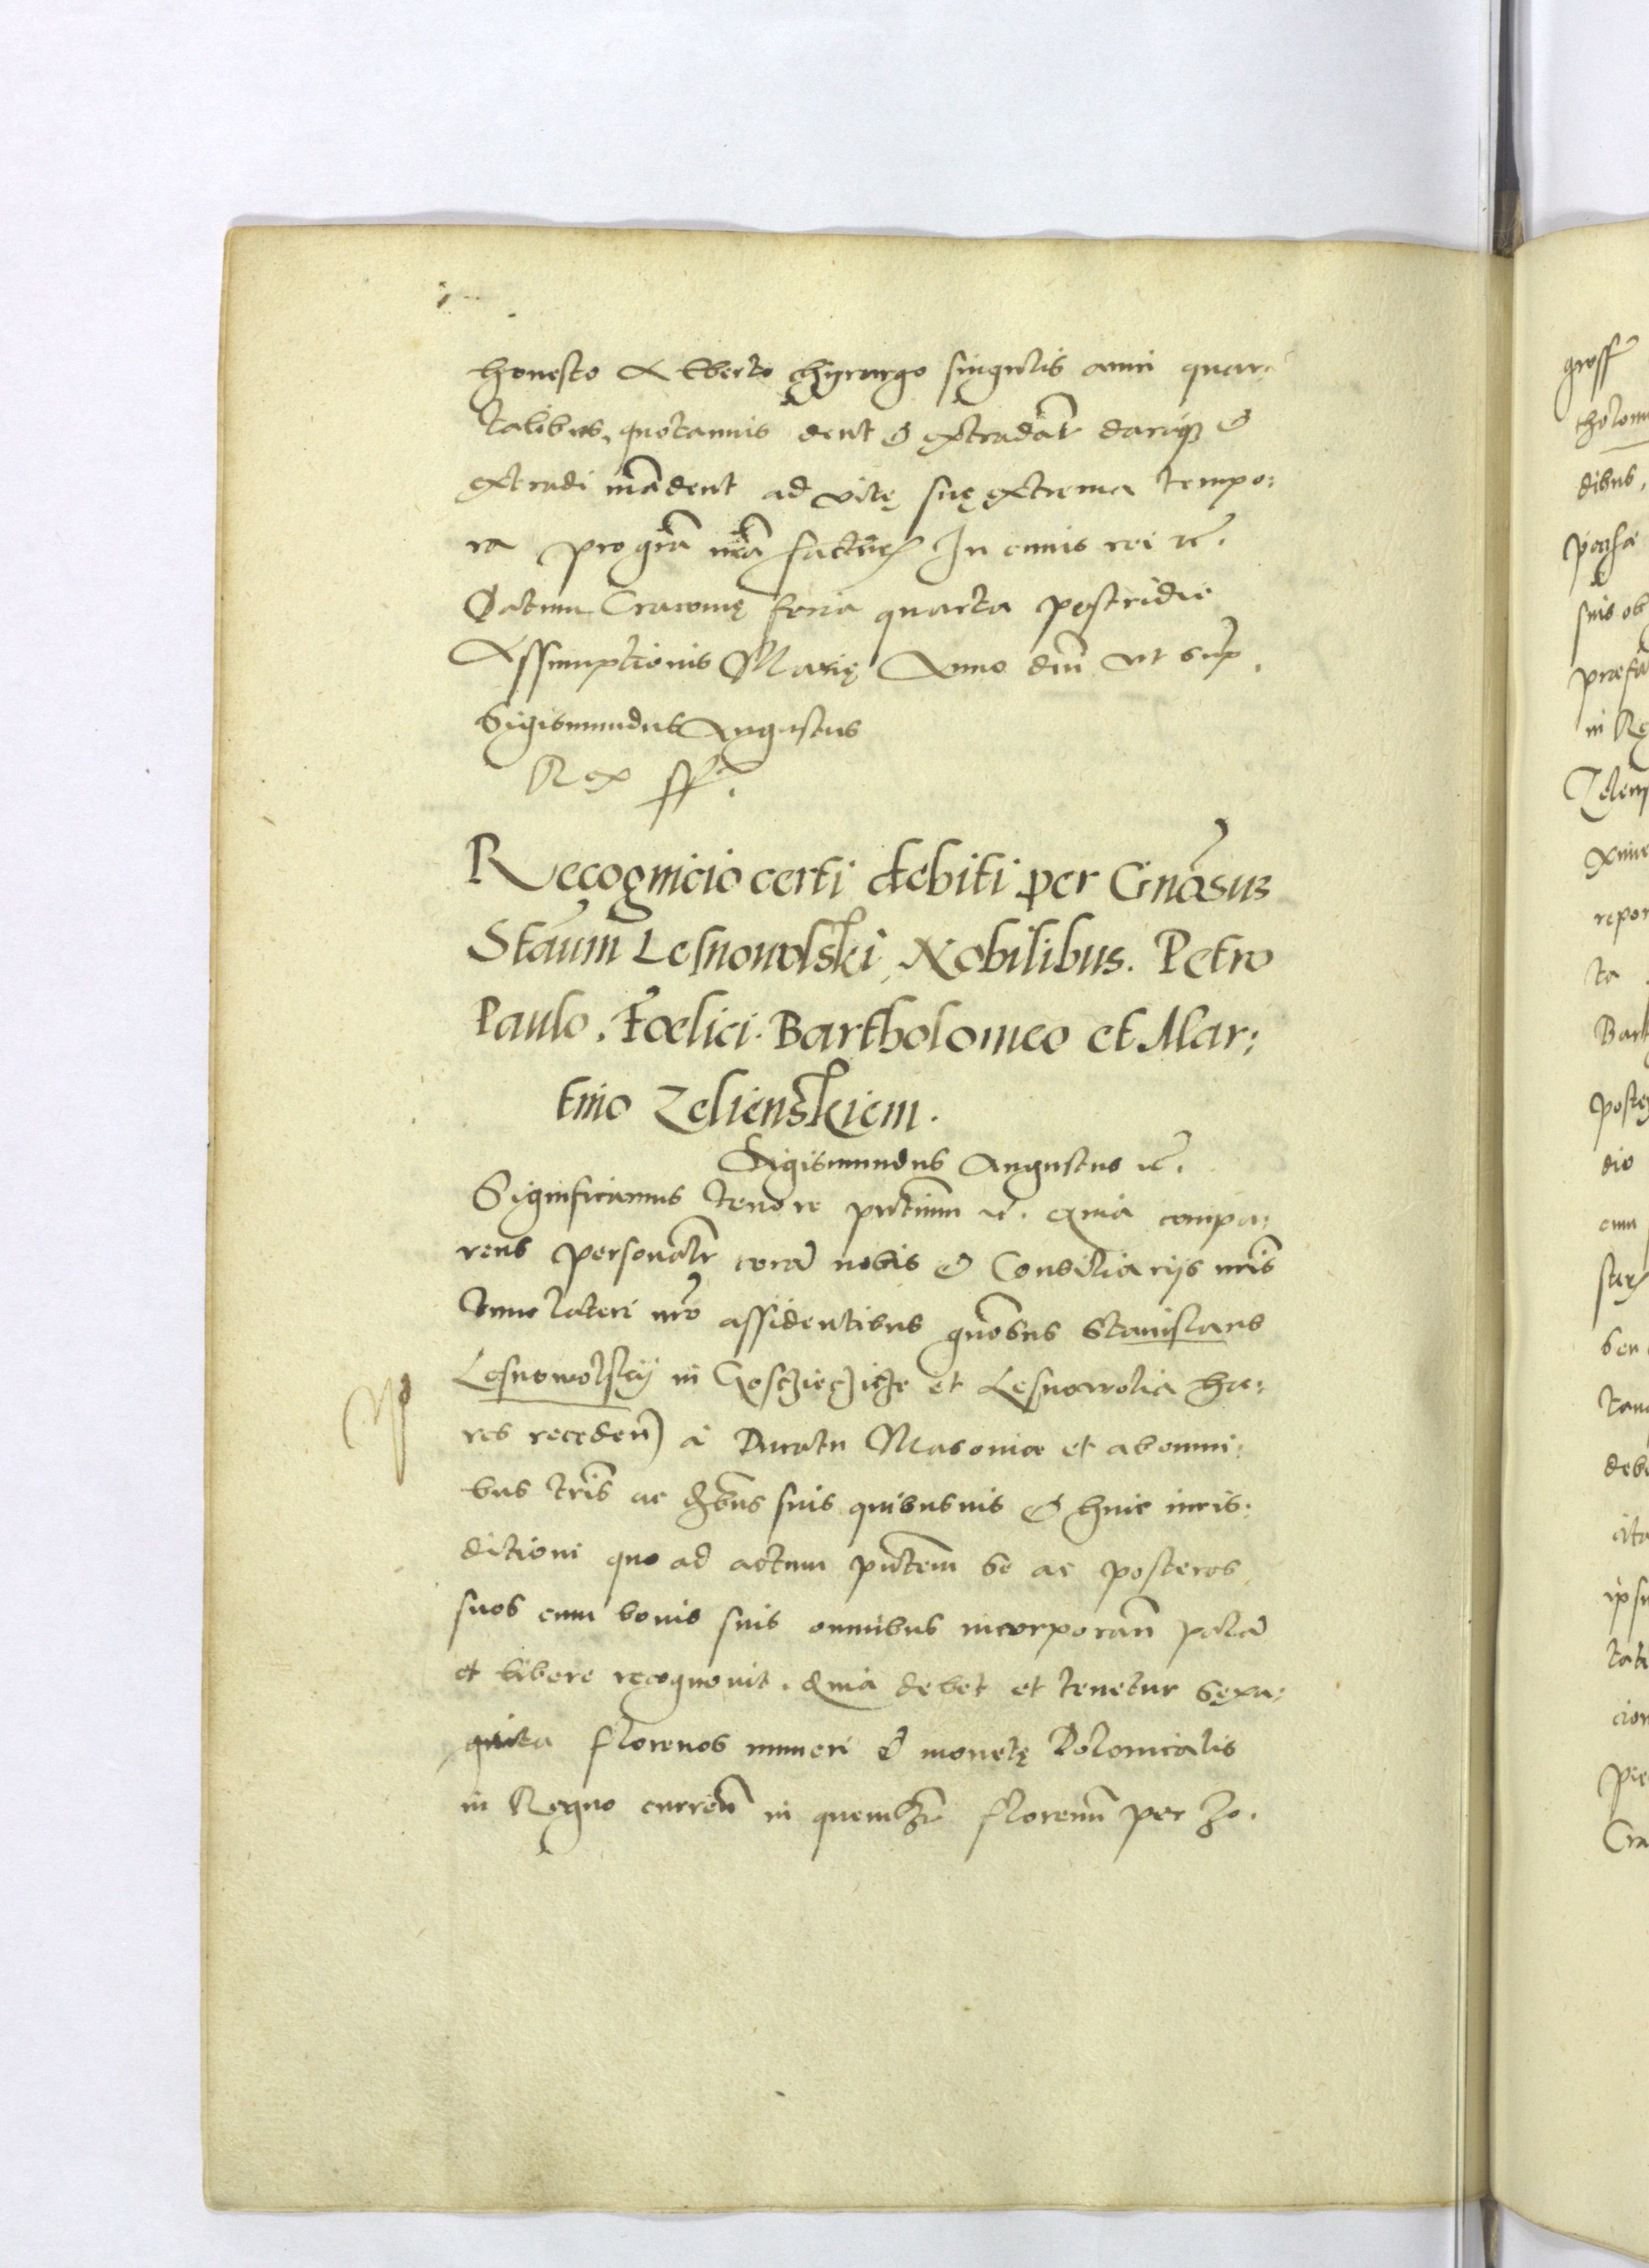 honesto Alberto chyrurgo singulis anni quar:
talibus, quotannis dent & extradāt dariq3 &
extradi mādent ad vitę suę extrema tempo:
ra pro grā nrā factur In cuius rei rc̄.
Datum Cracovię feria quarta postridie
Assumptionis Marię Anno dm̄ ut sup̄.
Sigismundus Augustus
Rex sst.
Recognicio certi debiti per Gn̄osus
Stāum Lesnowolski Nobilibus. Petro
Paulo. Fœlici. Bartholomeo et Mar:
tino Zelienskiem.
Sigismundus Augustus rc̄.
Significamus tenore pn̄tium rc̄. Quia compa:
rens personalr̄ corā nobis & Consiliarijs nr̄is
tunc lateri nr̄o assidentibus gn̄osus Stanislaus
Lesnowolskij in et Lesnawolia hæ:
res receden̄ à Ducatu Masoviæ et ab omni:
bus tr̄is ac suis quibusvis & huic iuris:
ditioni quo ad actum pn̄tem se ac posteros
suos cum bonis suis omnibus incorporan̄ palā
et libere recognovit. Quia debet et tenetur sexa:
ginta florenos numeri & monetę Polonicalis
in Regno curren̄ in quemlr̄ florenū per 30.
groff
tholom
dibus,
suis ob
præfa
in Re
repor
ta
Bart
poste
dio
cum
sen
deb
ipsu
tati
cion
Cra